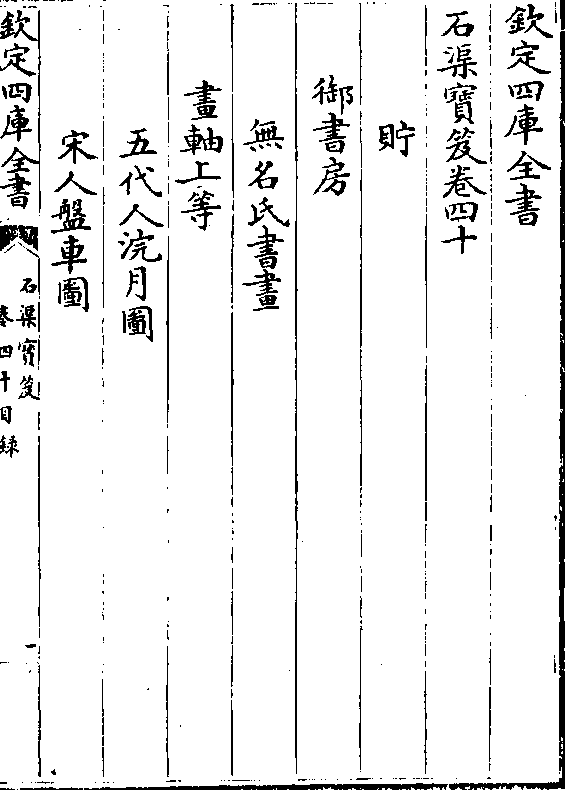 欽定四庫全書
石渠寶笈卷四十
貯
御書房
無名氏書畫
畫軸上等
五代人浣月圖
宋人盤車圖
欽定四庫全書
石渠寶笈
卷四十目録
一